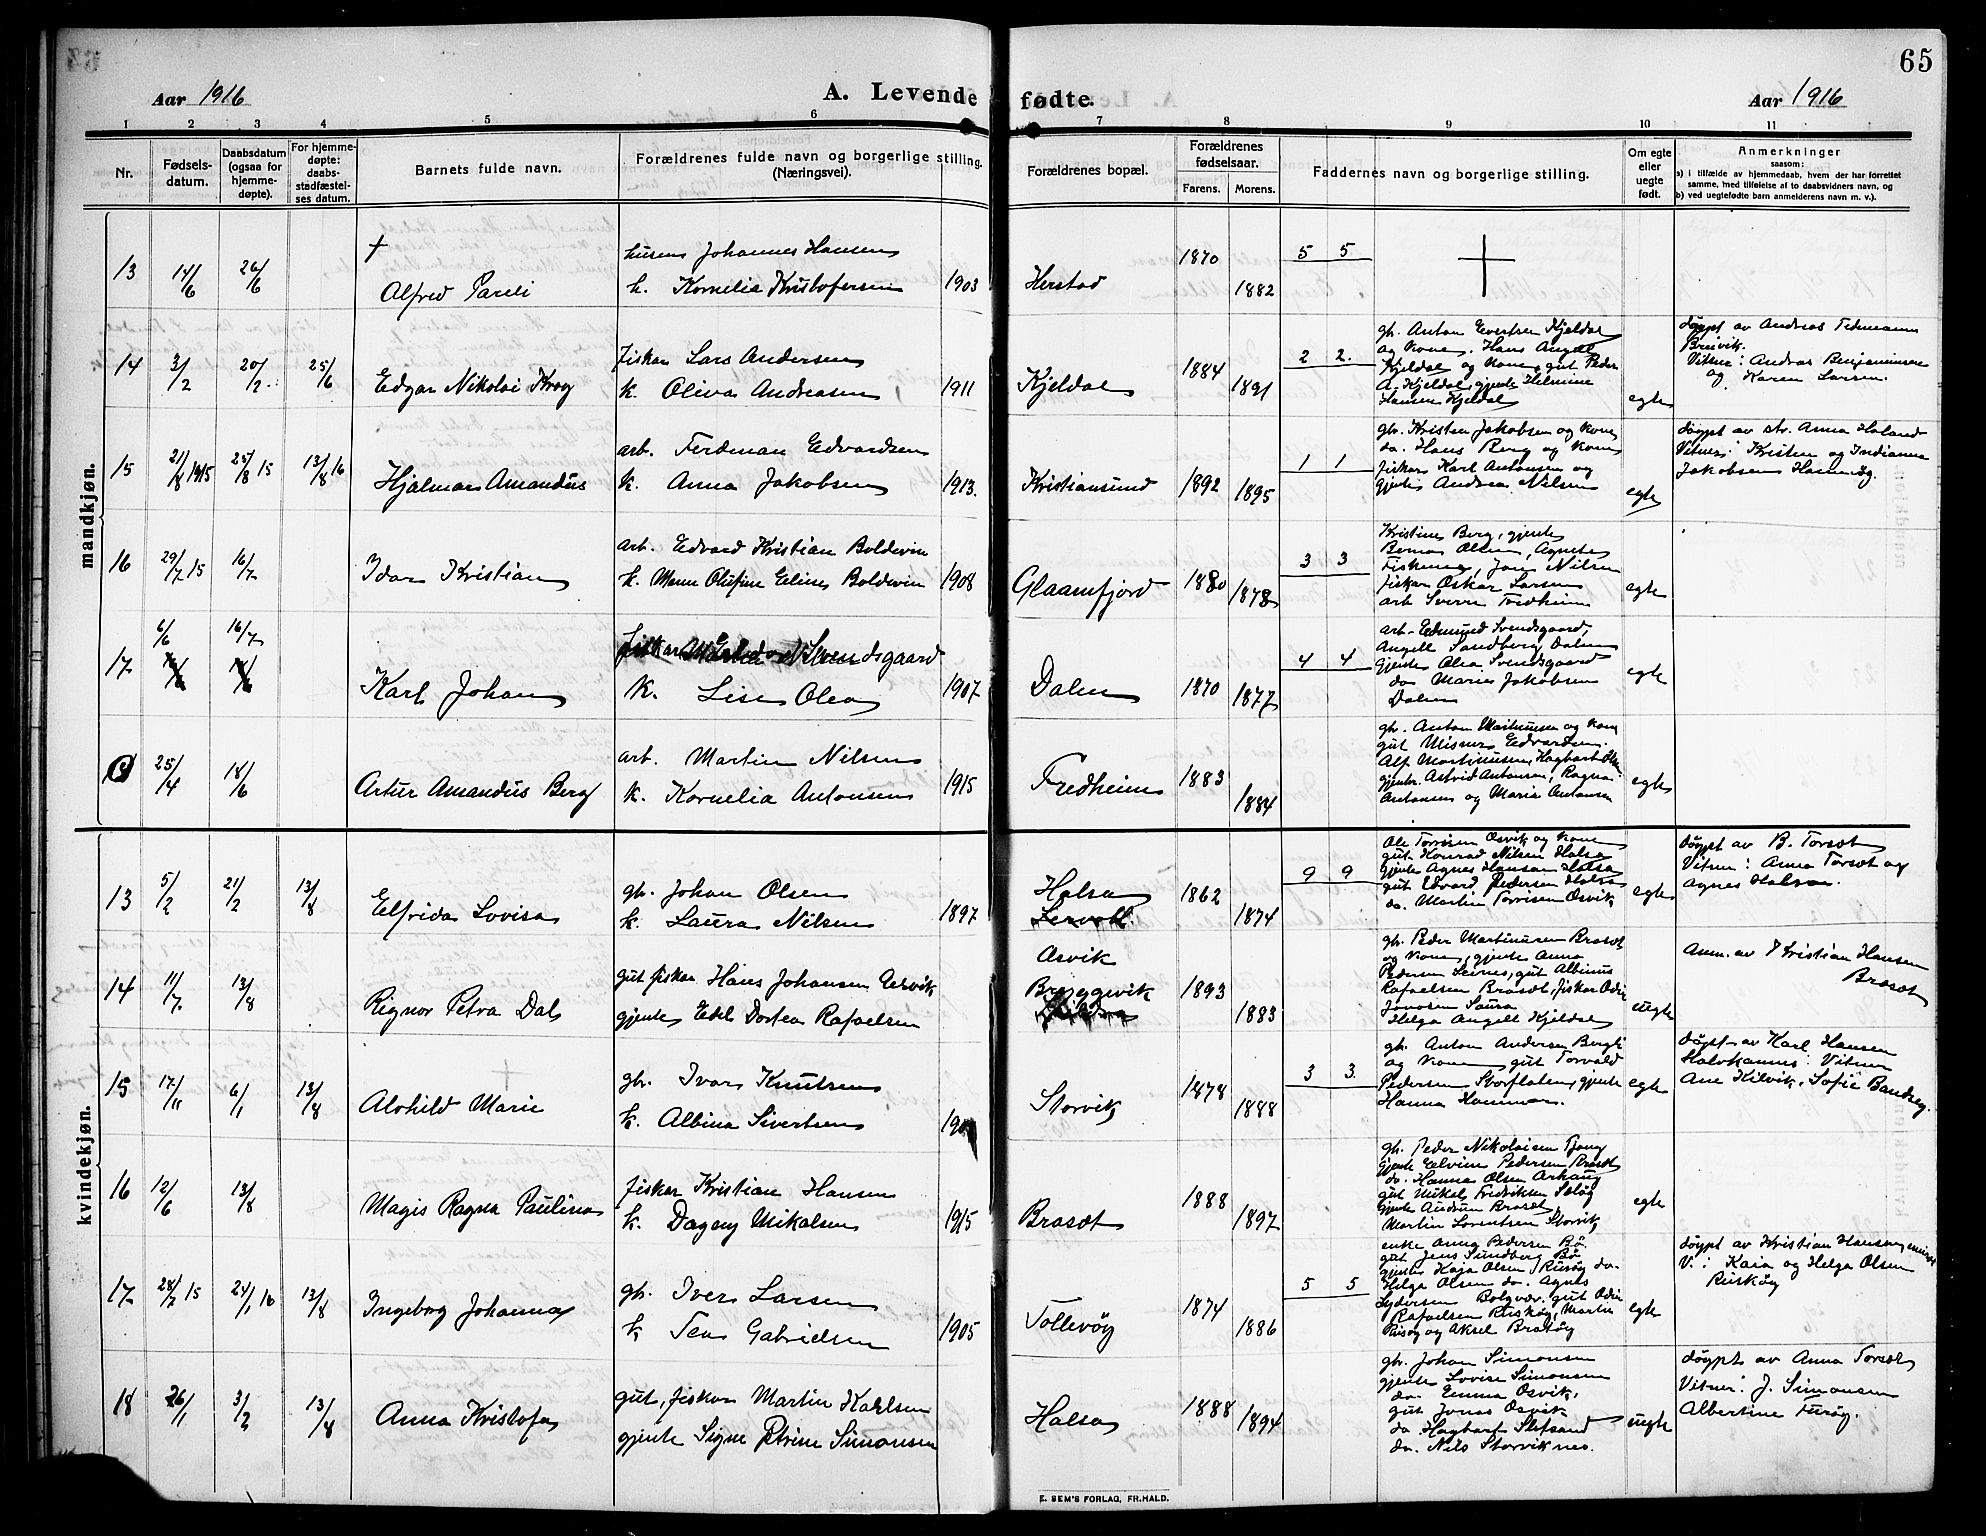 65
Aar 1916
A. Levende fødte.
Aar 1916
1 2 3 4 5 6 7 8 9 10 11
Nr.
Fødsels-
datum.
Daabsdatum
(ogsaa for
hjemme-
døpte).
For hjemme-
døpte:
daabs-
stadfæstel-
ses datum.
Barnets fulde navn.
Forældrenes fulde navn og borgerlige stilling.
(Næringsvei).
Forældrenes bopæl.
Forældrenes
fødselsaar.
Farens. Morens.
Faddernes navn og borgerlige stilling.
Om egte
eller
uegte
født.
Anmerkninger
saasom:
a) i tilfælde av hjemmedaab, hvem der har forrettet
samme, med tilføielse af to daabsvidners navn, og
b) ved uegtefødte barn anmelderens navn m. v.).
mandkjøn.
13 14/6 26/6
†
Alfred Pareli
husm Johannes Hansen
k. Kornelia Kristofersen 1903
Herstad 1870 1882
5 5
14 3/2 20/2 25/6
Edgar Nikolai Krog
fisker Lars Andersen
k. Oliva Andreasen 1911
Kjeldal 1884 1891
2 2.
gb. Anton Evertsen Kjeldal
og kone, Hans Angel
Kjeldal og kone, gut Peder
A. Kjeldal, gjente Helmine
Hansen Kjeldal
egte
døypt av Andreas Tidemann
Breivik.
Vitner: Andreas Benjaminsen
og Karen Larsen.
15 21/8 1915 25/8 15 13/8 16
Hjalmar Amandus
arb. Ferdinan Edvardsen
k. Anna Jakobsen 1913.
Kristiansund 1892 1895
1 1
gb. Kristen Jakobsen og kone
do. Hans Berg og kone
fisker Karl Antonsen og
gjente Andrea Nilsen
egte
døypt av str. Anna Haland
Vitner: Kristen og Indianna
Jakobsen Hamnøg.
16 29/7 15 16/7
Idar Kristian
arb. Edvard Kristian Boldevin
k. Maren Olufine Eline Boldevin 1908
Glaamfjord 1880 1878
3 3
Kristine Berg, gjente
Berna Olsen, Agnete
Fisknes, Jon Nilsen
fisker Oskar Larsen
arb Sverre Fredheim
egte
17 6/6 16/7
Karl Johan
fisker Svendsgaard
k. Lise Olea 1907
Dalen 1870 1877
4 4
arb. Edmund Svendsgaard,
Angell Sandberg Dalen
gjente Olea Svendsgaard
do Marie Jakobsen
Dalen
egte
25/4 18/6
Artur Amandus Berg
arb. Martin Nilsen
k. Kornelia Antonsen 1915
Fredheim 1883 1884
gb. Anton Martinusen og kone
gut Misner Edvardsen.
Alf Martinusen, Hagbart
gjenter Astrid Antonsen, Ragna
Antonsen og Marie Antonsen
egte
kvindekjøn.
13 5/2 21/2 13/8
Elfrida Lovisa
gb. Johan Olsen
k. Laura Nilsen 1897
Halsa 1862 1874
9 9
Ole Torrisen Osvik og kone
gut Konrad Nilsen Halsa
gjente Agnes Hansen Halsa
gut Edvard Pedersen Halsa
do. Martin Torrisen Osvik
egte
døypt av B. Torsæt
Vitner: Anna Torsæt og
Agnes Halsa.
14 11/7 13/8
Rignor Petra Dal
gut fisker Hans Johansen Esvik
gjente Edel Dortea Rafaelsen
Osvik
Bryggevik 1893 1883
gb. Peder Martinusen Brasæt
og kone, gjente Anna
Pedersen Selnes, gut Albinus
Rafaelsen Brasæt, fisker Odin
Jonasen Saura
Helga Angell Kjeldal
uegte
Anm. av Kristian Hansen
Brasæt
15 17/11 6/1 13/8
†
Alvhild Marie
gb. Ivar Knutsen
k. Albina Sivertsen
Storvik 1878 1888
3 3.
gb. Anton Andersen
og kone, gut Torvald
Pedersen Storflaten, gjente
Hanna Hamman.
egte
døypt av Karl Hansen
Halvkannes Vitner
Ane Hilvik, Sofie Bantzeg.
16 12/6 13/8
Magis Ragna Paulina
fisker Kristian Hansen
k. Dagny Mikalsen 1915
Brasæt 1888 1897
gb. Peder Nikolaisen Tjong
gjente Elvine Pedersen Brasæt
do. Hanna Olsen Arhaug
gut Mikal Fredriksen Selög
gjente Audrun Brasæt
Martin Lorentsen Storvik
egte
17 28/7 15 24/1 16 13/8
Ingebog Johanna
gb. Iver Larsen
k Tea Gabrielsen 1905
Tollevög 1874 1886
5 5
enke Anna Pedersen Bø.
gut Jens Sundberg Bø
gjente Kaja Olsen Risøg do.
Helga Olsen do. Agnes
Sydersen Bolgvær. gut Odin
Rafaelsen Risköy, Martin
Risøy og Aksel Bratøy
egte
døypt av Kristian Hansen
V.: Kaia og Helga Olsen
Risköy
18 26/1 3/2 13/8
Anna Kristofa
gut, fisker Martin Karlsen
gjente Signe Petrine Simonsen
Halsa 1888 1894
gb. Johan Simonsen
gjente Lovise Simonsen
do. Emma Osvik,
gut Jonas Osvik
do Hagbart Slipsand
do. Nils Storviknes.
uegte
døypt av Anna Torsæt
Vitner: J. Simonsen
Albertine Furøy.
E. SEM'S FORLAG, FR.HALD.